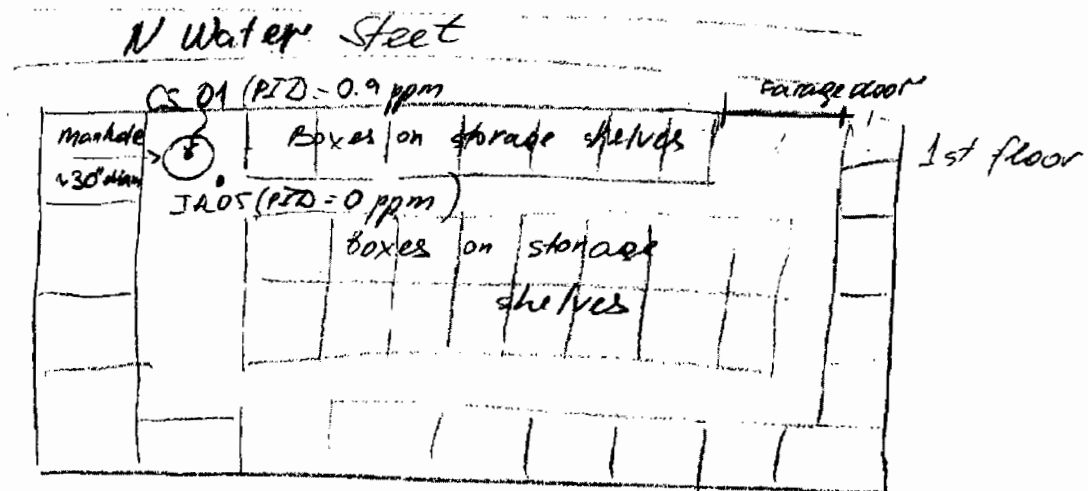 N Water Steet
CS 01 (PID - 0.9 ppm
Garage door
Manhole
~30" diam
Boxes on storage shelves
1st floor
IA05 (PID = 0 ppm)
Boxes on storage
shelves